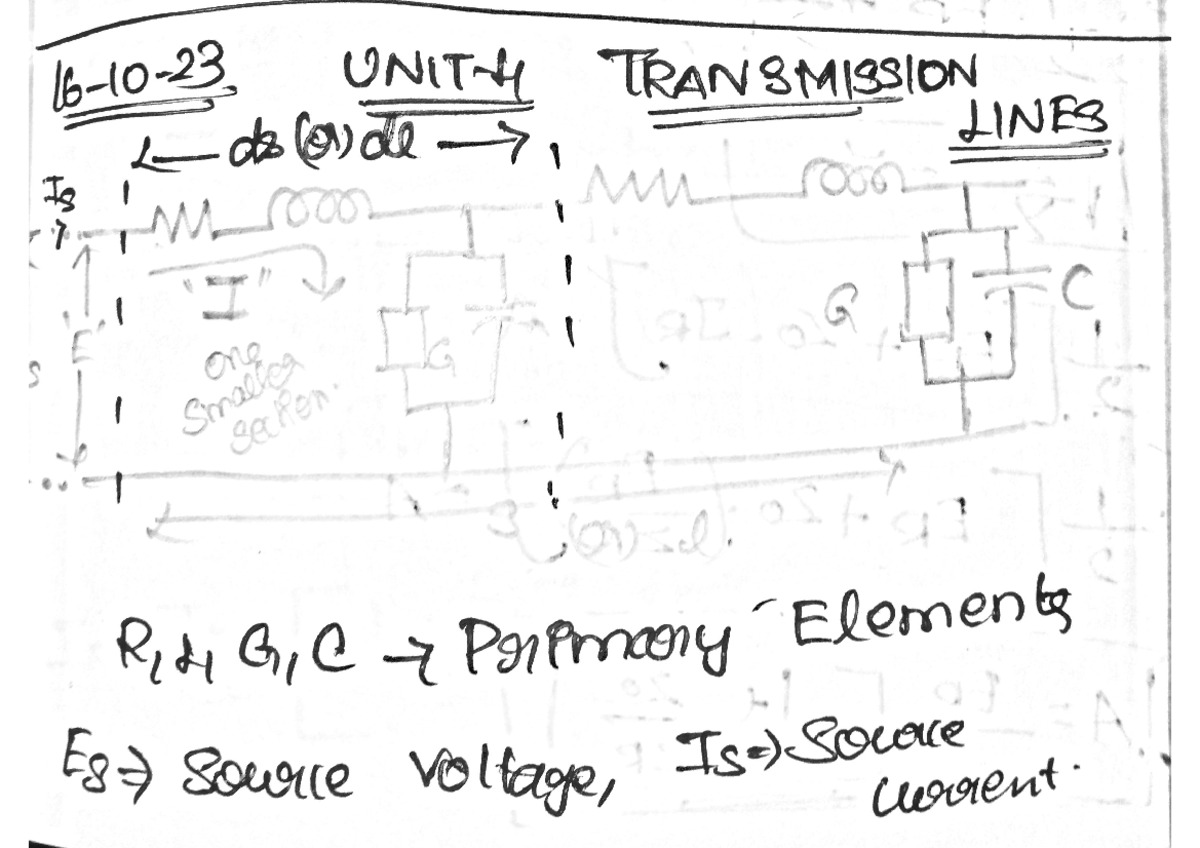 16-10-23 UNIT-4 TRANSMISSION
LINES
dz (or) dl
Is
"I"
"E"
s
one
smaller
section.
G
G C
(or) = l.
R, L, G, C → Primary Elements
Es ⇒ Source voltage, Is ⇒ Source
current.